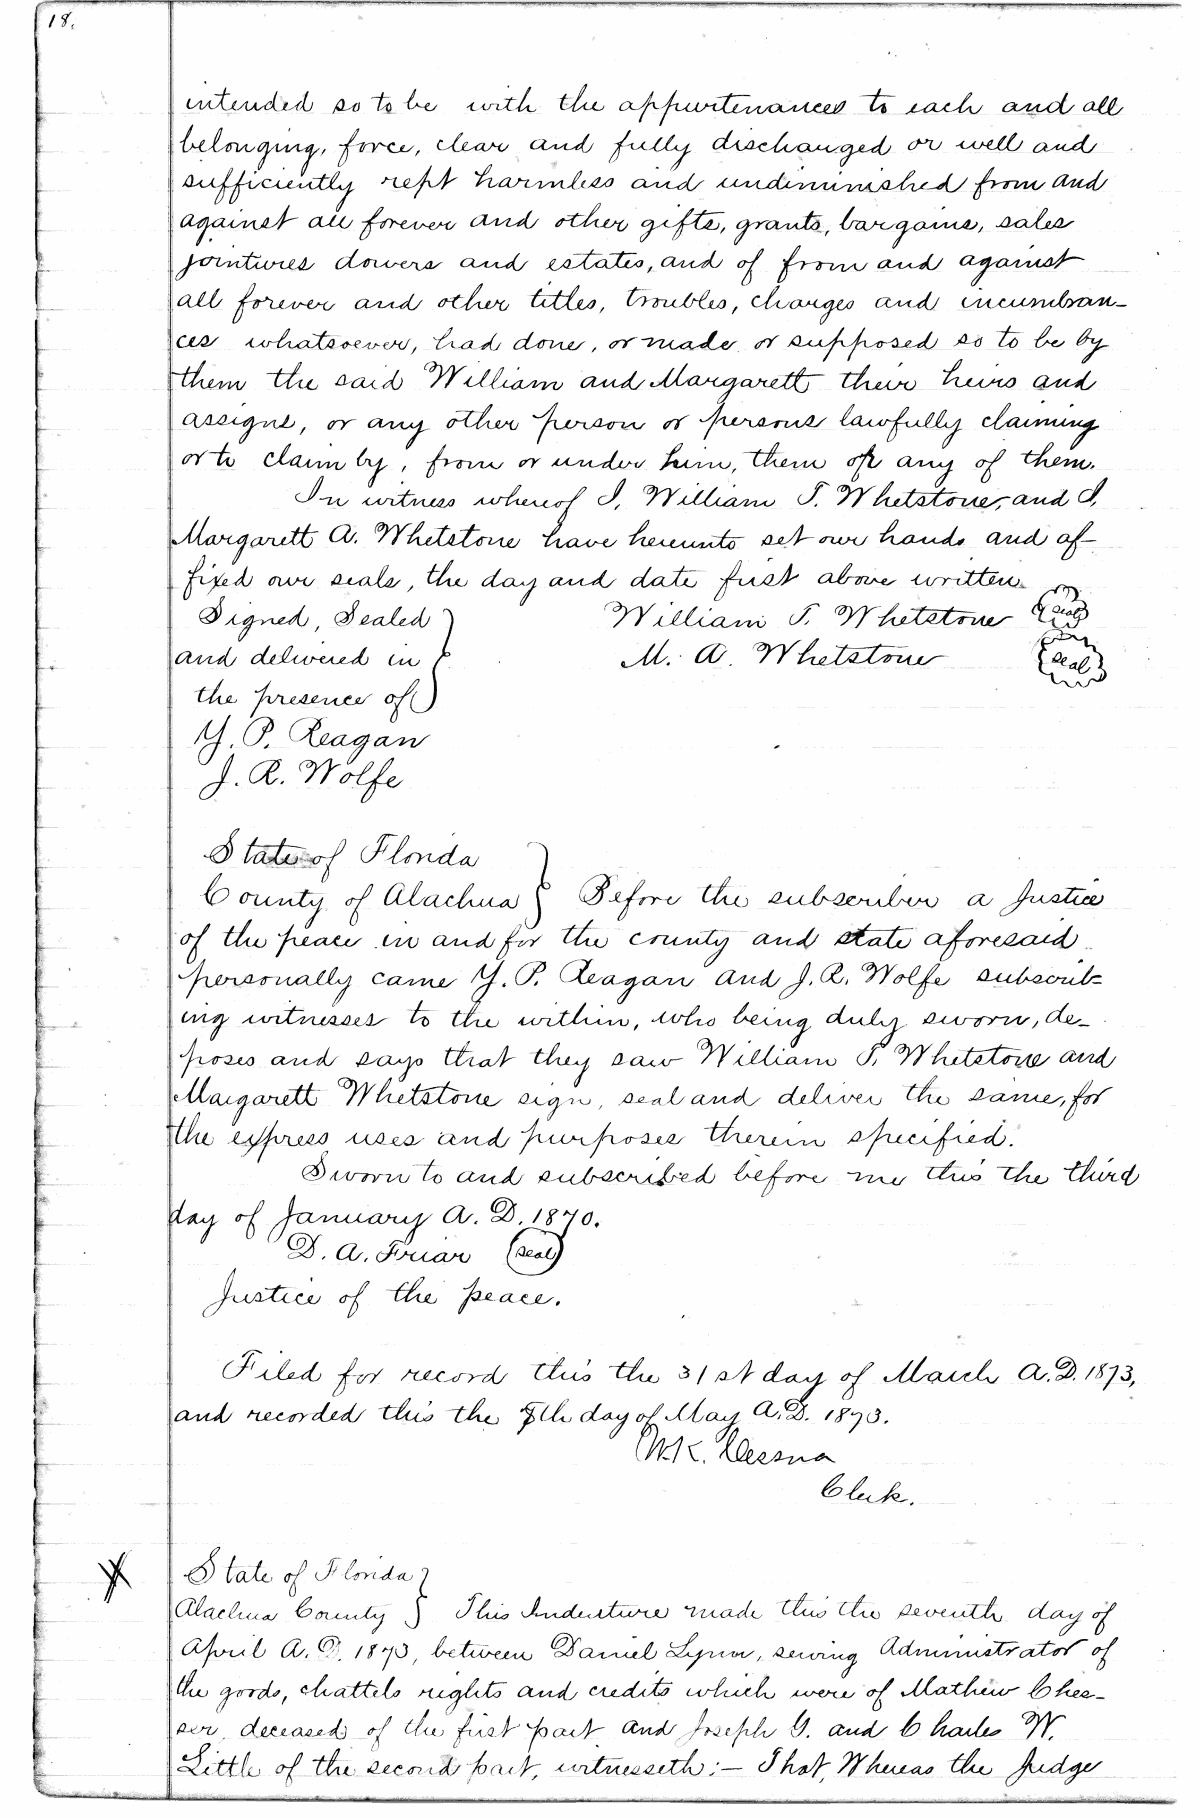 18.
intended so to be with the appurtenances to each and all
belonging, force, clear and fully discharged or well and
sufficiently rept harmless and undiminished from and
against all forever and other gifts, grants, bargains, sales
jointures dowers and estates, and of from and against
all forever and other titles, troubles, charges and incumbran-
ces whatsoever, had done, or made or supposed so to be by
them the said William and Margarett their heirs and
assigns, or any other person or persons lawfully claiming
or to claim by, from or under him, them or any of them.
In witness whereof I, William T. Whetstone, and I,
Margarett A. Whetstone have hereunto set our hands and af-
fixed our seals, the day and date first above written.
Signed, Sealed } William T. Whetstone (seal)
and delivered in } M. A. Whetstone (seal)
the presence of }
Y. P. Reagan
J. R. Wolfe
State of Florida }
County of Alachua } Before the subscriber a Justice
of the peace in and for the county and state aforesaid
personally came Y. P. Reagan and J. R. Wolfe subscrib-
ing witnesses to the within, who being duly sworn, de-
poses and says that they saw William T. Whetstone and
Margarett Whetstone sign, seal and deliver the same, for
the express uses and purposes therein specified.
Sworn to and subscribed before me this the third
day of January A. D. 1870.
D. A. Friar (seal)
Justice of the peace.
Filed for record this the 31st day of March A.D. 1873,
and recorded this the 8th day of May A.D. 1873.
W.K. Cessna
Clerk.
State of Florida }
Alachua County } This Indenture made this the seventh day of
April A. D. 1873, between Daniel Lynn, serving Administrator of
the goods, chattels rights and credits which were of Mathew Ches-
ser, deceased of the first part and Joseph G. and Charles W.
Little of the second part, witnesseth:— That, Whereas the Judge